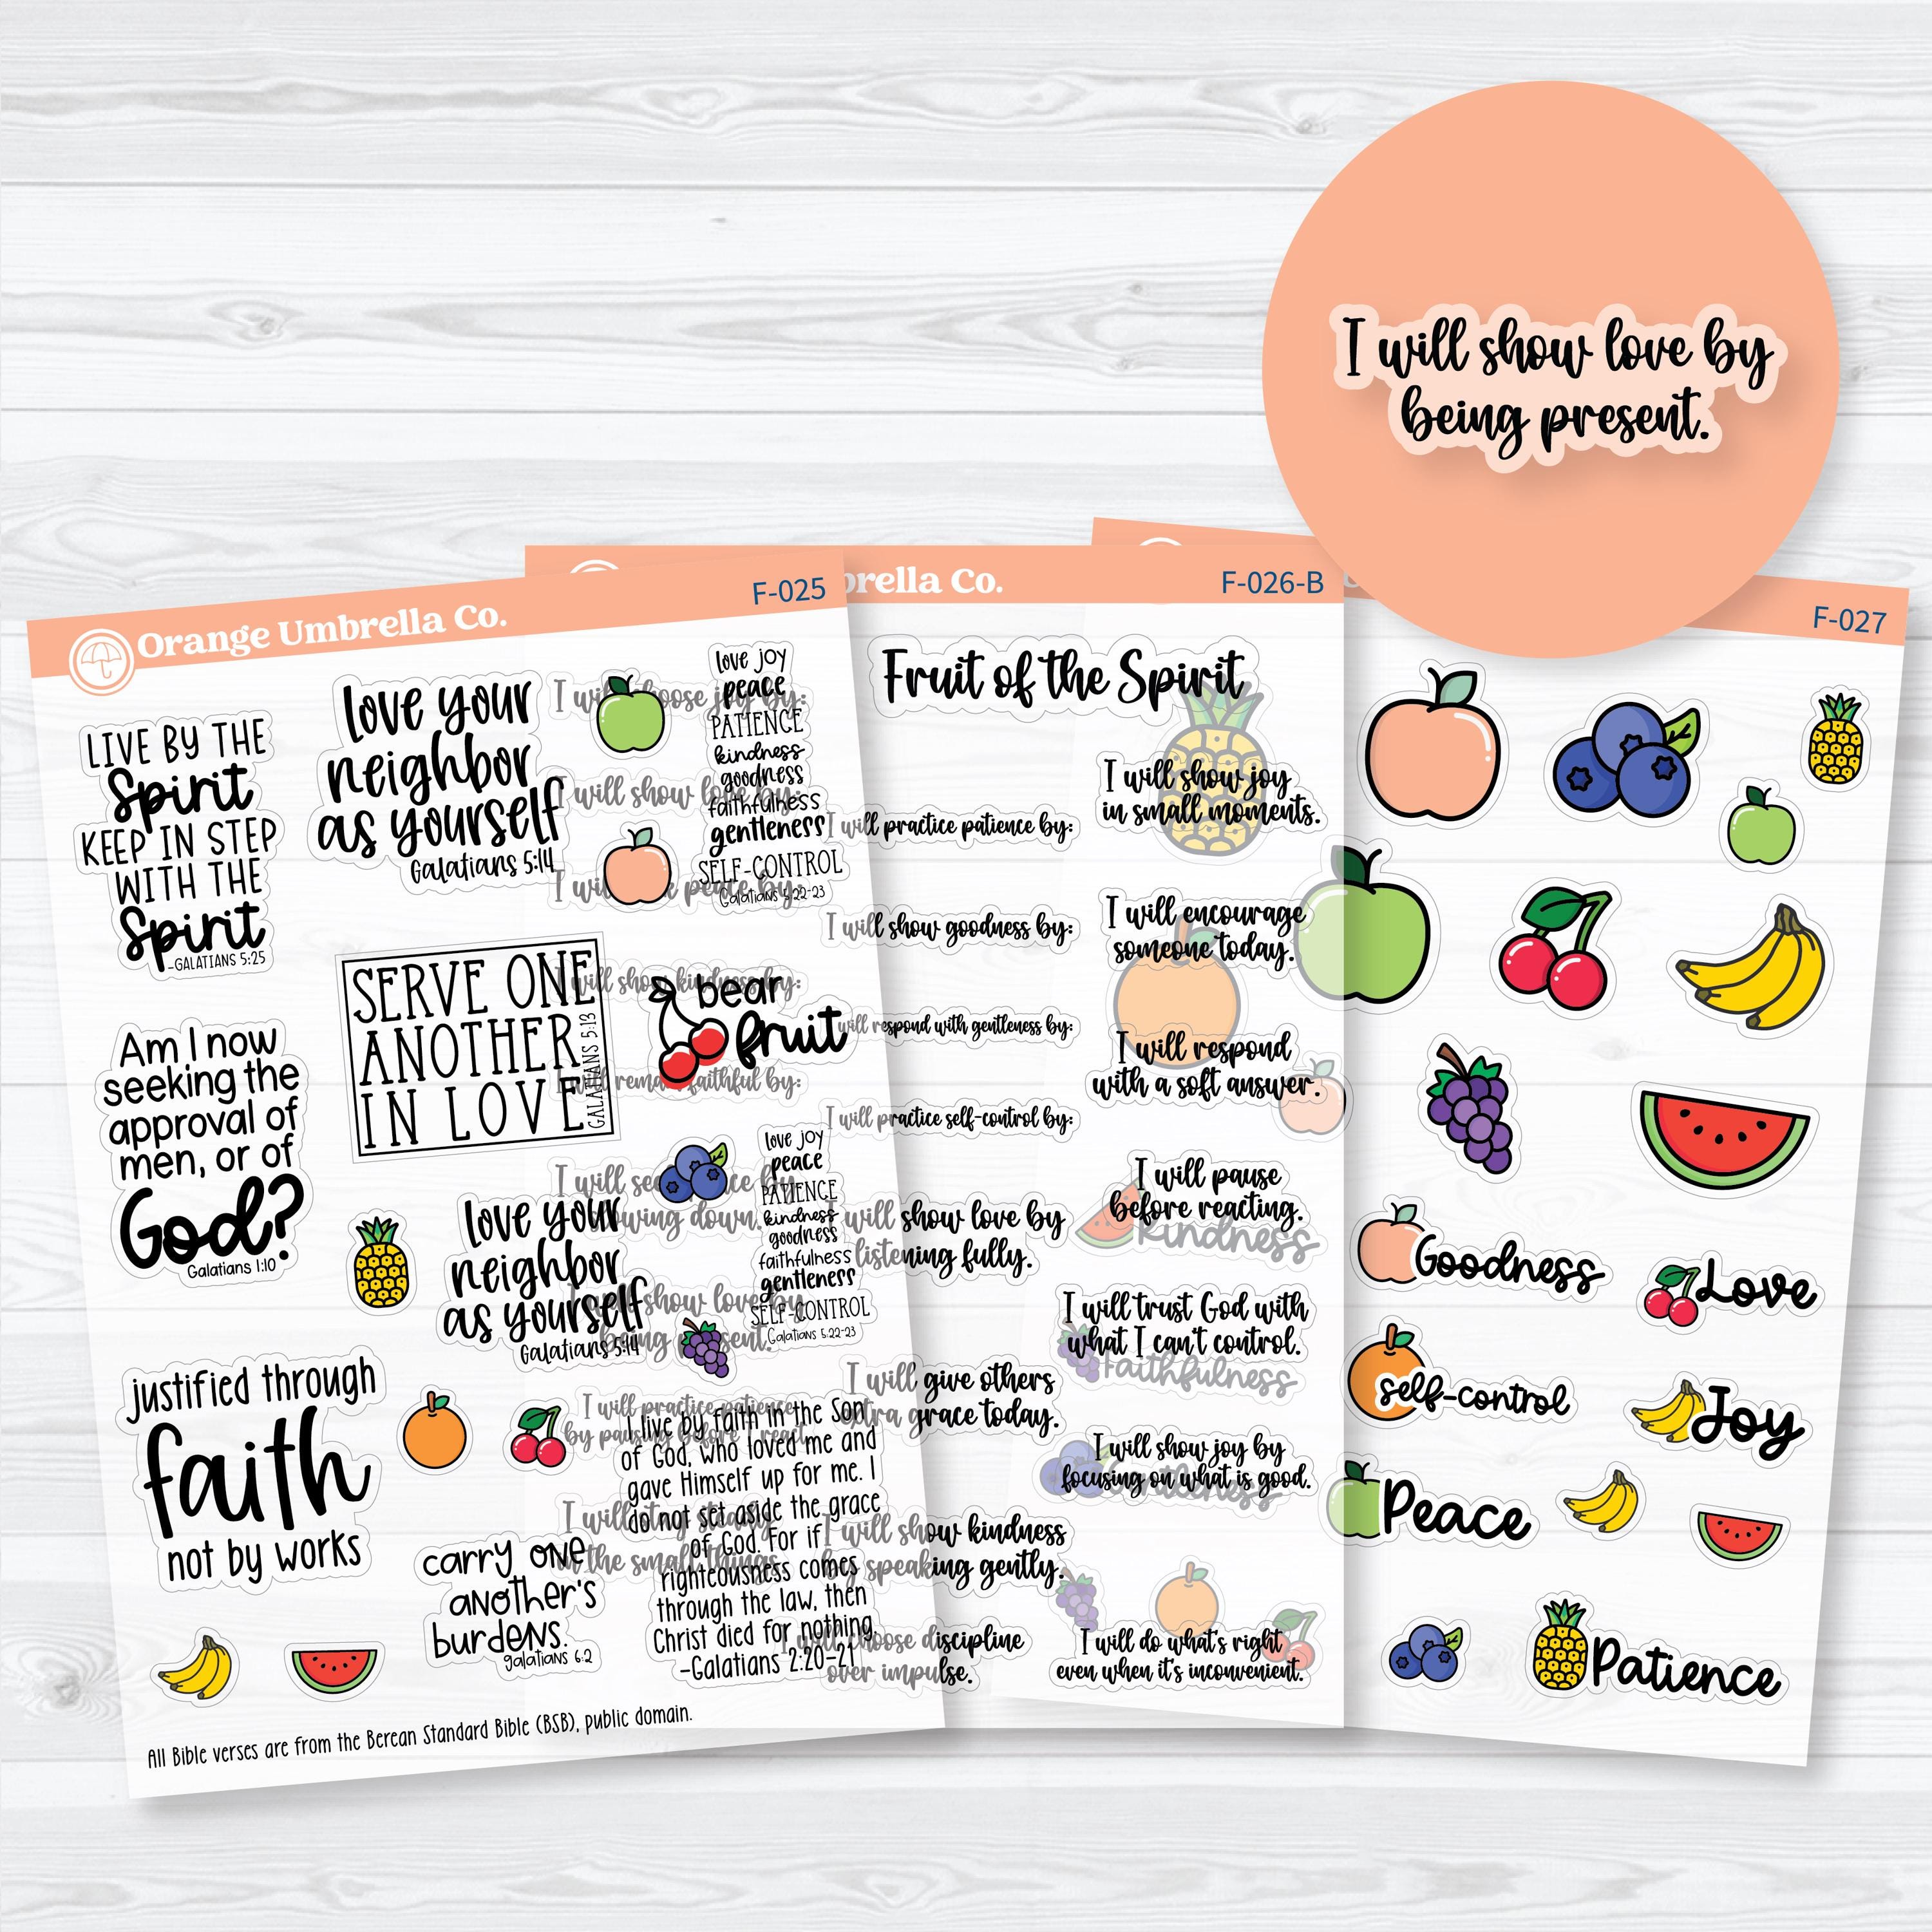 I will show love by
being present.
Orange Umbrella Co.
F-025
LIVE BY THE
Spirit
KEEP IN STEP
WITH THE
Spirit
-GALATIANS 5:25
love your
neighbor
as yourself
Galatians 5:14
love joy
peace
PATIENCE
kindness
goodness
faithfulness
gentleness
SELF-CONTROL
Galatians 5:22-23
Am I now
seeking the
approval of
men, or of
God?
Galatians 1:10
SERVE ONE
ANOTHER
IN LOVE
GALATIANS 5:13
bear
fruit
love your
neighbor
as yourself
Galatians 5:14
love joy
peace
PATIENCE
kindness
goodness
faithfulness
gentleness
SELF-CONTROL
Galatians 5:22-23
justified through
faith
not by works
carry one
another's
burdens.
galatians 6:2
I live by faith in the Son
of God, who loved me and
gave Himself up for me. I
do not set aside the grace
of God. For if
righteousness comes
through the law, then
Christ died for nothing.
-Galatians 2:20-21
All Bible verses are from the Berean Standard Bible (BSB), public domain.
brella Co.
F-026-B
Fruit of the Spirit
I will choose joy by:
I will show love by:
I will seek peace by:
I will show kindness by:
I will remain faithful by:
being present.
I will practice patience
by pausing before I react.
in the small things.
I will practice patience by:
I will show goodness by:
will respond with gentleness by:
I will practice self-control by:
I will show love by
listening fully.
I will give others
extra grace today.
I will show kindness
by speaking gently.
I will choose discipline
over impulse.
I will show joy
in small moments.
I will encourage
someone today.
I will respond
with a soft answer.
I will pause
before reacting.
I will trust God with
what I can't control.
I will show joy by
focusing on what is good.
I will do what's right
even when it's inconvenient.
F-027
kindness
Goodness
Love
Faithfulness
self-control
Joy
Gentleness
Peace
Patience